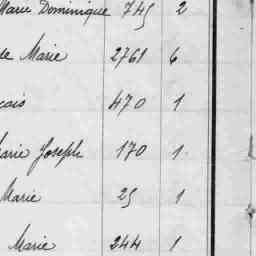 Marie Dominique 745 2
de Marie 2761 6
çois 470 1
Marie Joseph 170 1
Marie 25 1
Marie 244 1